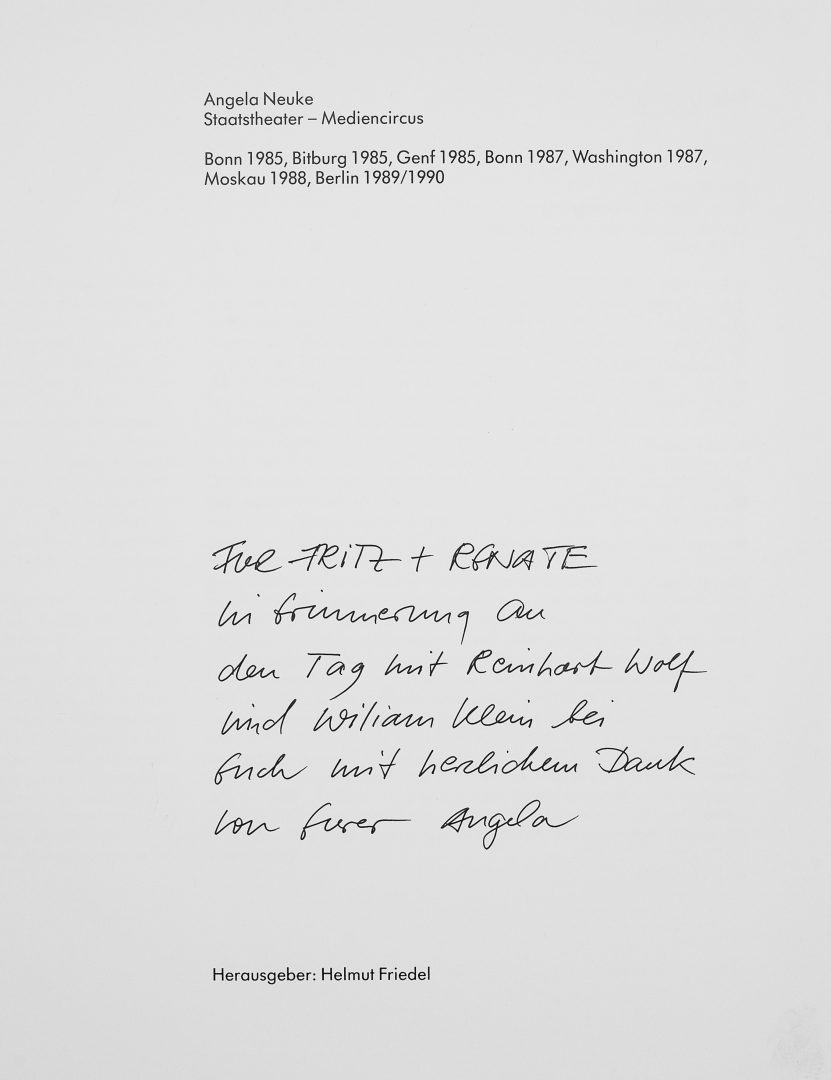 Angela Neuke
Staatstheater – Mediencircus
Bonn 1985, Bitburg 1985, Genf 1985, Bonn 1987, Washington 1987,
Moskau 1988, Berlin 1989/1990
FUER FRITZ + RENATE
in Erinnerung an
den Tag mit Reinhart Wolf
und Wiliam Klein bei
Euch mit herzlichem Dank
von Eurer Angela
Herausgeber: Helmut Friedel